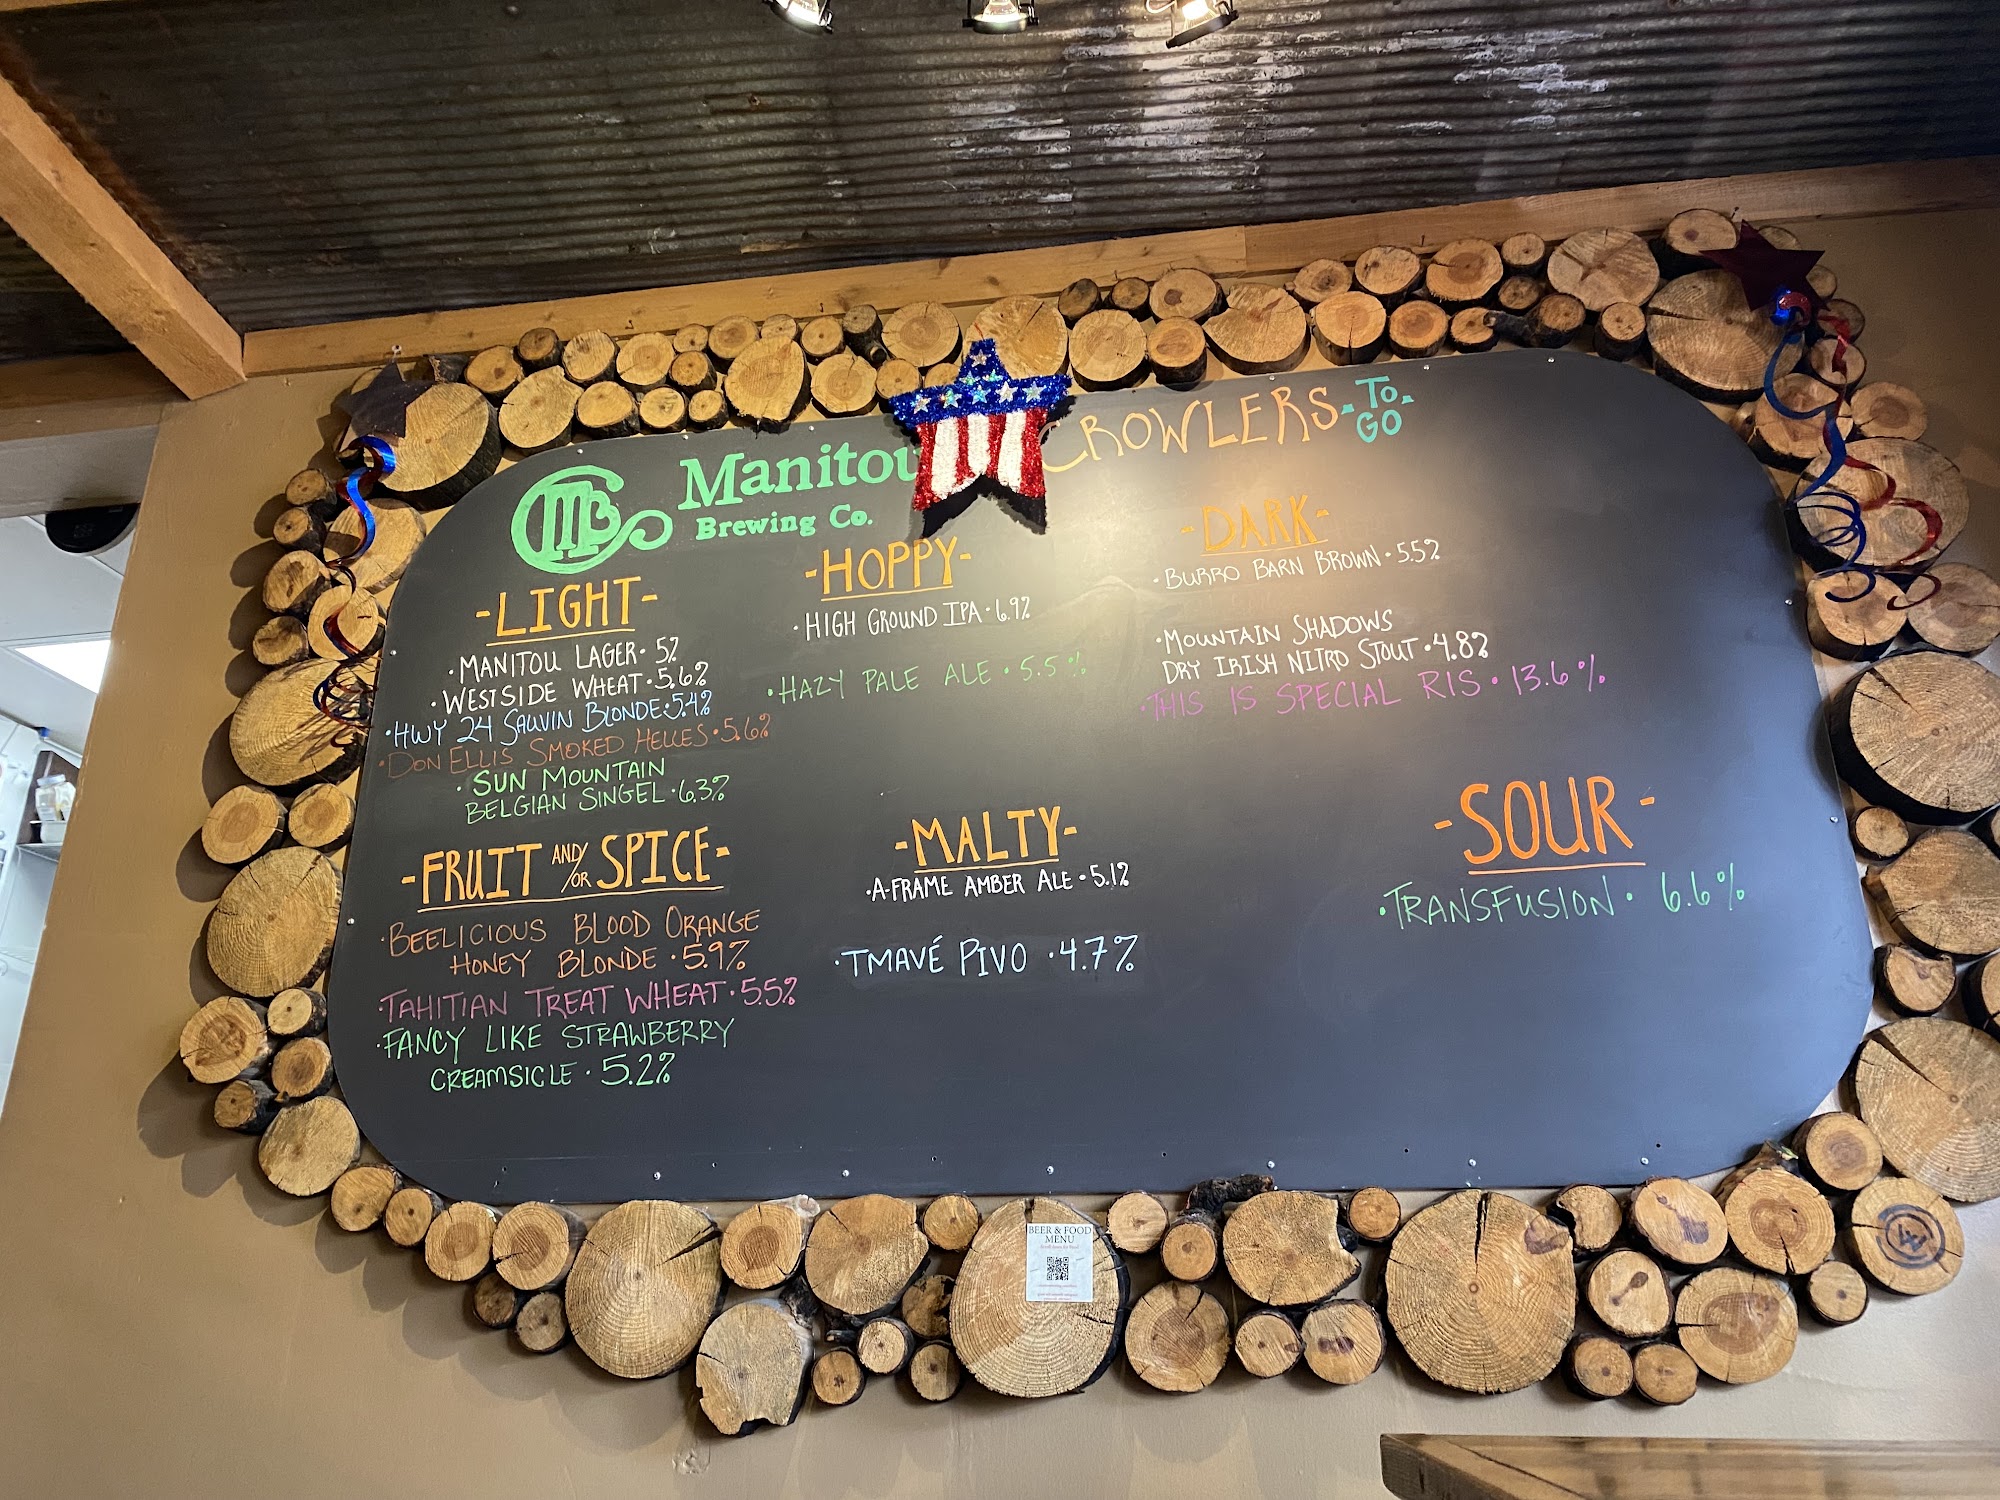 MCB
Manitou
Brewing Co.
CROWLERS - TO
GO -
-LIGHT-
·MANITOU LAGER· 5%
·WESTSIDE WHEAT·5.6%
·HWY 24 SAUVIN BLONDE·5.4%
·DON ELLIS SMOKED HELLES·5.6%
·SUN MOUNTAIN
BELGIAN SINGEL·6.3%
-FRUIT AND/OR SPICE-
·BEELICIOUS BLOOD ORANGE
HONEY BLONDE·5.9%
·TAHITIAN TREAT WHEAT·5.5%
·FANCY LIKE STRAWBERRY
CREAMSICLE·5.2%
-HOPPY-
·HIGH GROUND IPA·6.9%
·HAZY PALE ALE·5.5%
-MALTY-
·A-FRAME AMBER ALE·5.1%
·TMAVÉ PIVO·4.7%
-DARK-
·BURRO BARN BROWN·5.5%
·MOUNTAIN SHADOWS
DRY IRISH NITRO STOUT·4.8%
·THIS IS SPECIAL RIS·13.6%
-SOUR-
·TRANSFUSION·6.6%
BEER & FOOD
MENU